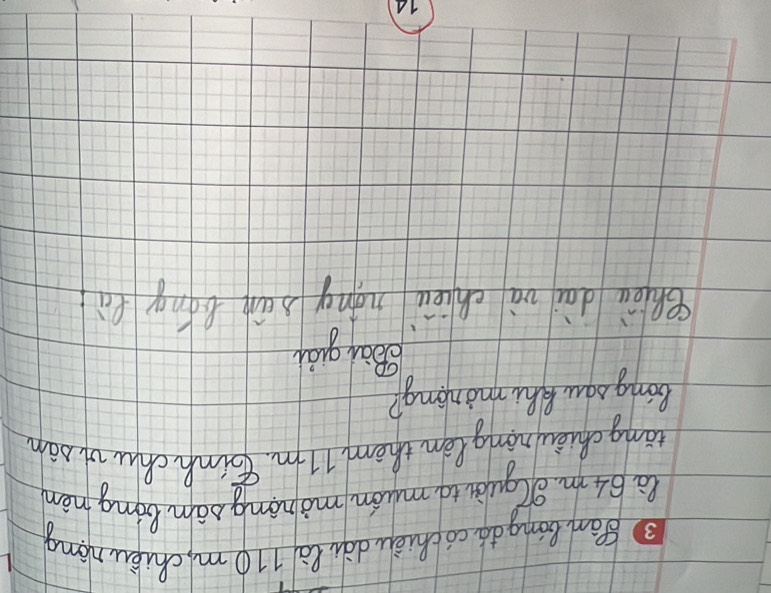 3 Sân bóng đá có chiều dài là 110 m, chiều rộng
là 64 m. Người ta muốn mở rộng sân bóng nên
tăng chiều rộng lên thêm 11 m. Tính chu vi sân
bóng sau khi mở rộng?
Bài giải
Chiều dài và chiều rộng sân bóng là:
14